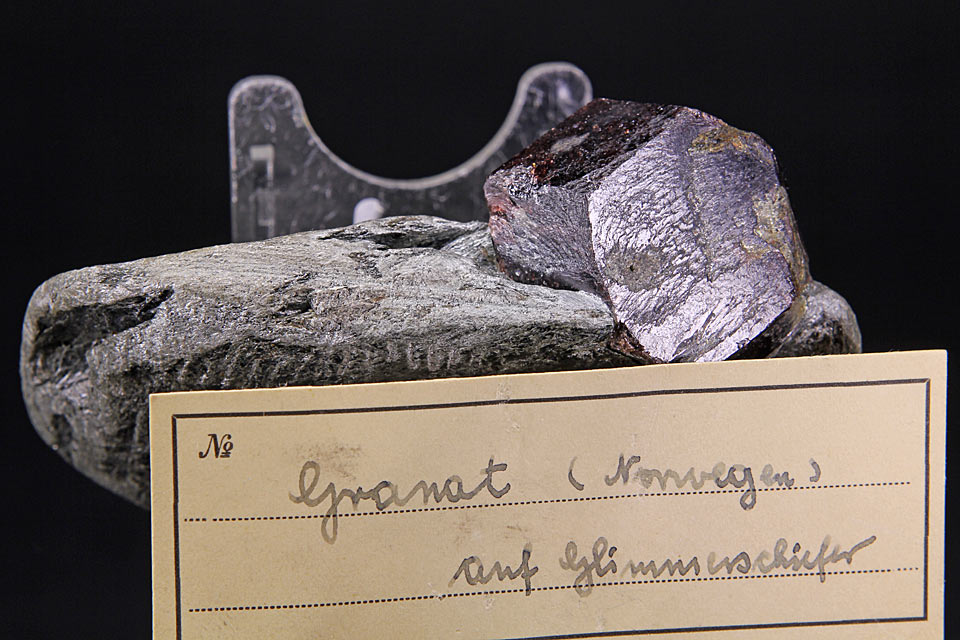 №
Granat (Norwegen)
auf Glimmerschiefer